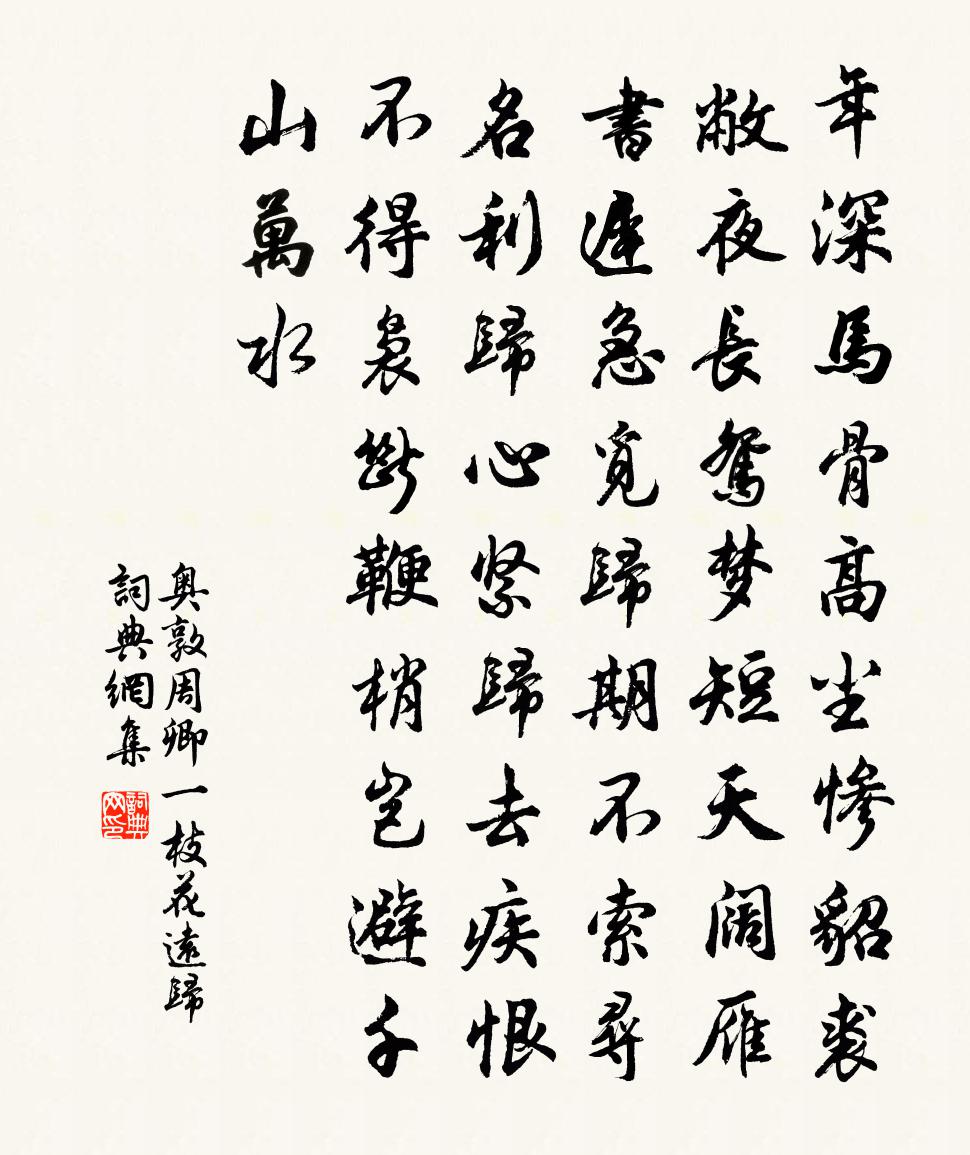 年深馬骨高尘慘貂裘
敝夜長鴛梦短天阔雁
書遲急覓歸期不索尋
名利歸心紧歸去疾恨
不得裊斷鞭梢岂避千
山萬水
奥敦周卿一枝花遠歸
詞典網集
詞典网印